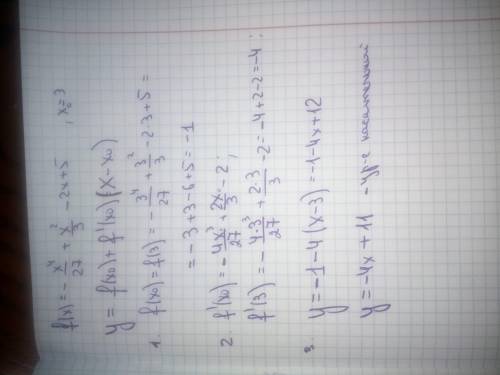 f(x) = -x⁴/27 + x²/3 - 2x + 5 , x₀ = 3
y = f(x₀) + f'(x₀)(x - x₀)
1. f(x₀) = f(3) = -3⁴/27 + 3²/3 - 2·3 + 5 =
= -3 + 3 - 6 + 5 = -1
2 f'(x₀) = -4x³/27 + 2x/3 - 2 ;
f'(3) = -4·3³/27 + 2·3/3 - 2 = -4 + 2 - 2 = -4 ;
3. y = -1 - 4(x - 3) = -1 - 4x + 12
y = -4x + 11 - ур-е касательной